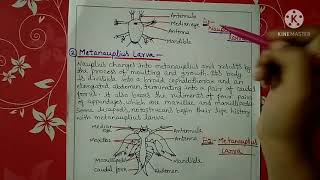 Antennule
Median eye
Antenna
Mandible
Fig:- Nauplius
Larva
KINEMASTER
② Metanauplius Larva:-
Nauplius changes into metanauplius and results by
the process of moulting and growth. Its body
is divisible into a broad cephalothorax and an
elongated abdomen, terminating into a pair of caudal
forks. It also bears the rudiments of four pairs
of appendages, which are maxillae and maxillipedes.
Some decapods, nostaceans begin their life history
with metanauplius larva.
Median
eye
Maxillae
Maxillipedes
Caudal fork
Antennule
Antenna
Mandible
Abdomen
Fig:- Metanauplius
Larva